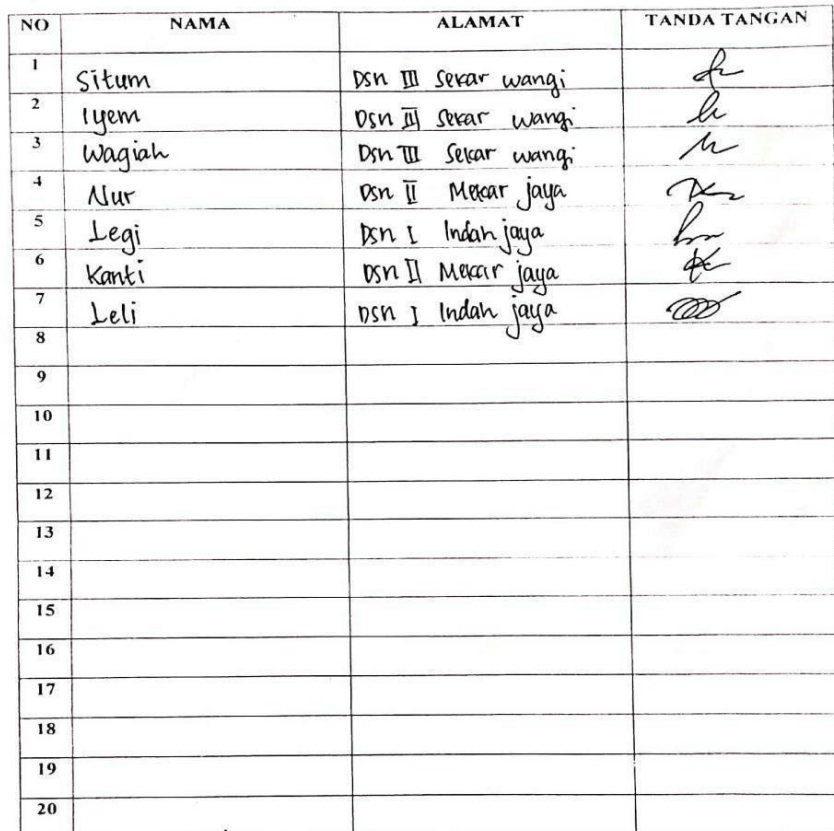 NO NAMA ALAMAT TANDA TANGAN
1 Situm Dsn III Sekar wangi
2 Iyem Dsn III Sekar wangi
3 Wagiah Dsn III Sekar wangi
4 Nur Dsn II Mekar jaya
5 Legi Dsn I Indah jaya
6 Kanti Dsn II Mekar jaya
7 Leli Dsn I Indah jaya
8
9
10
11
12
13
14
15
16
17
18
19
20